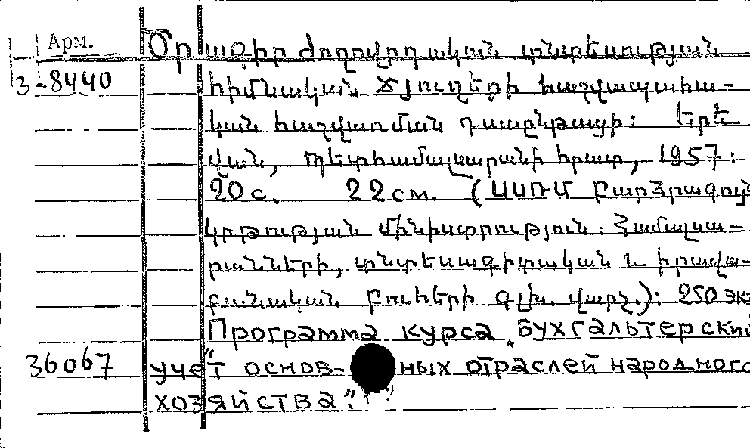 Арм. Ծրագիր ժողովրդական տնտեսության
3-8440 հիմնական ճյուղերի հաշվապահա-
կան հաշվառման դասընթացի: Երե-
վան, Պետհամալսարանի հրատ., 1957:
20 с. 22 см. (ՍՍՌՄ Բարձրագույն
կրթության մինիստրություն: Համալսա-
րանների, տնտեսագիտական և իրավա-
բանական բուհերի գլխ. վարչ.): 250 экз
Программа курса „бухгалтерский
36067 учет основ- ных отраслей народного
хозяйства".